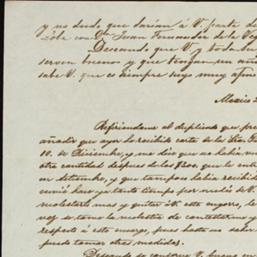 y no dudo que darian á V. parte de
con Dn. Juan Fernandez de la Veg
Deseando que V. y toda su
serven buenos y que tengan un año
sabe V. que es siempre suyo muy afmo
Mexico 2
Refiriendome al duplicado que pre
añadir que ayer he recibido carta de la Sra.
10. de Diciembre, y me dice que no habia
otra cantidad despues de los $200. que le entr
en Setiembre, y que tampoco habia recibid
hace ya tanto tiempo por medio de V.
molestarlo mas y quitar á V. este engorro, le
vez se tome la molestia de contestarme
respecto á este encargo, pues hasta no saber
puedo tomar otras medidas.
Deseando se conserve V. bueno